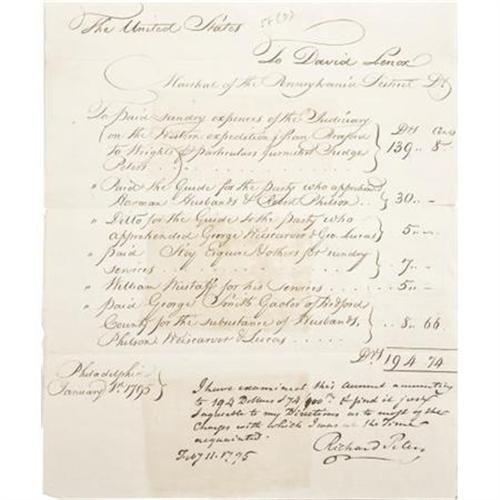 The United States
To David Lenox
Marshal of the Pennsylvania District Dr
Drs Cens
To paid sundry expences of the Judiciary
(on the Western expedition) from
To Wrights particulars furnished Judge 139 .. 8
Peters
" Paid the Guide for the party who apprehend
Herman Husbands & Robert Philson .. 30 .. —
" Ditto for the Guide to the party who
apprehended George Wiscarver & Geo. Lucas 5 .. —
" paid Esquire & others for sundry
services 7 .. —
" William for his services 5 .. —
" paid George Smith Gaoler of Bedford
County for the subsistance of Husbands, 8 .. 66
Philson Wiscarver & Lucas
Drs 194 74
Philadelphia
January 1st. 1795
I have examined this account amounting
to 194 Dollars & 74/100ths & find it just &
agreeable to my Directions as to most of the
Charges with which I was at the Time
acquainted.
Feby 11. 1795
Richard Peters